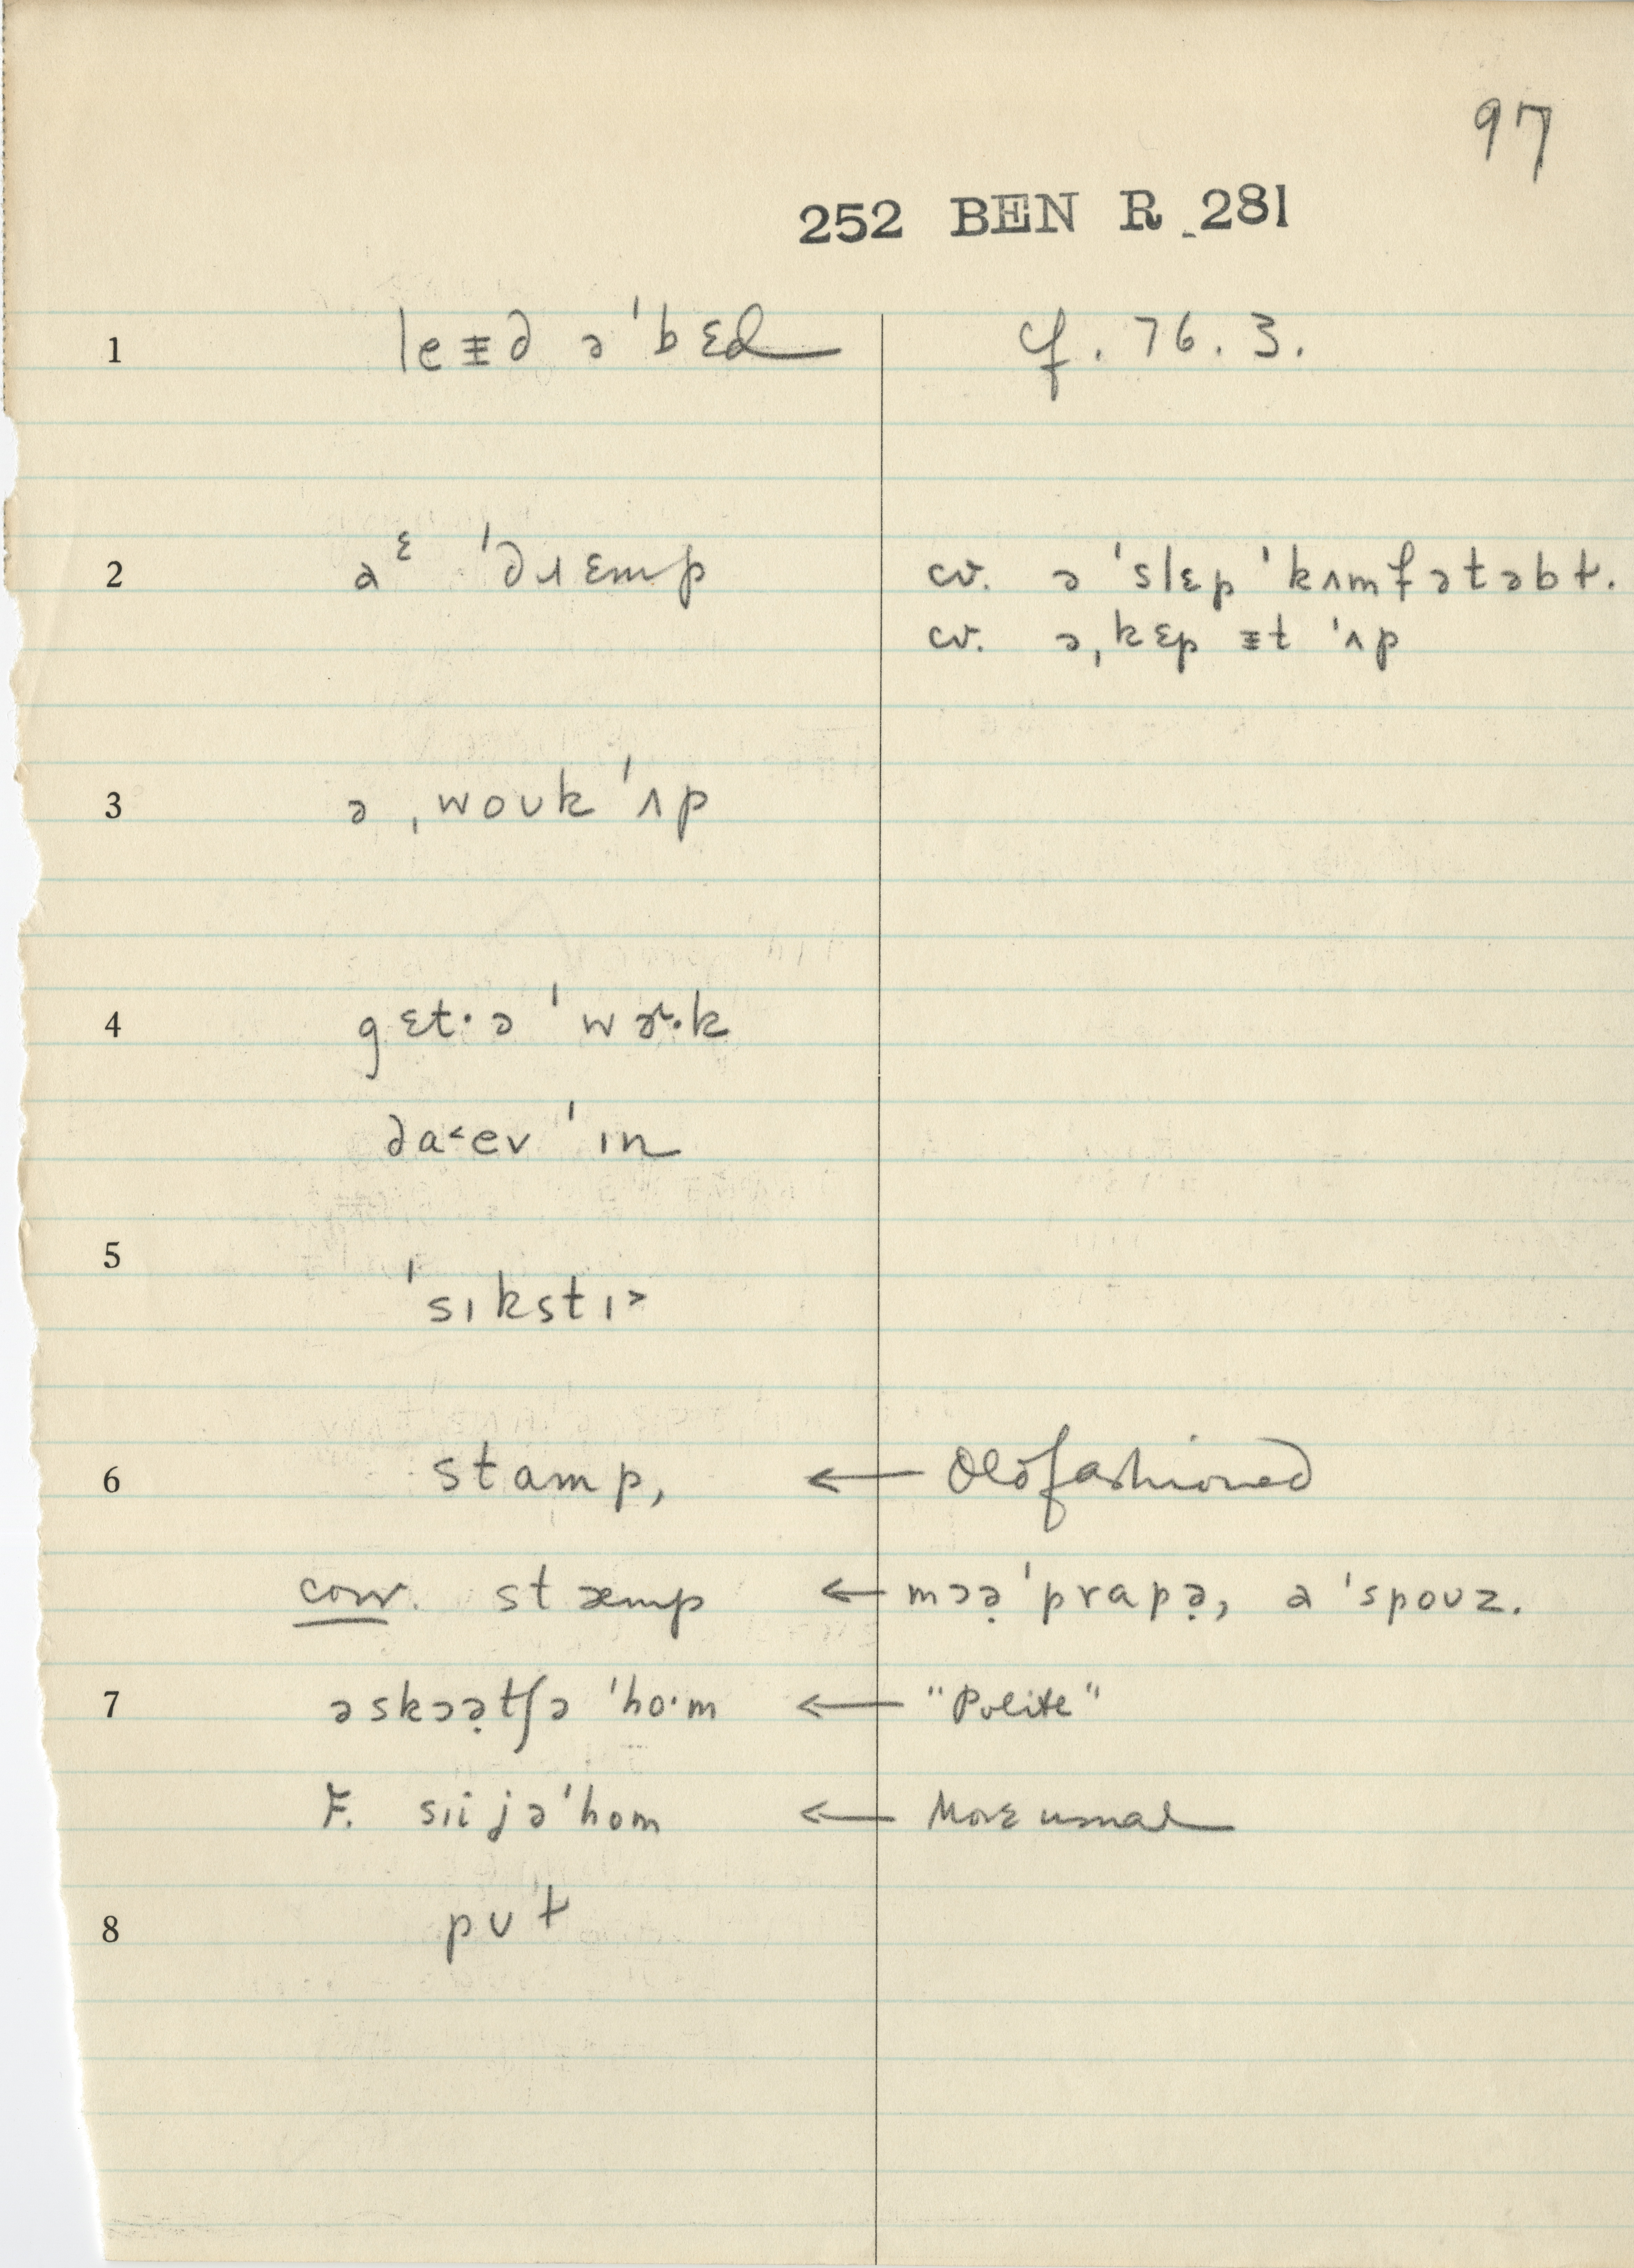 97
252 BEN R 281
1 leᵻd ə'bɛd cf. 76. 3.
2 aᵋ 'dɹɛmp cv. ə 'slɛp 'kʌmfətəbɫ.
cv. ə ˌkɛp ᵻt 'ʌp
3 ə ˌwoʊk 'ʌp
4 gɛt·ə 'wɚ·k
da˂ev 'ɪn
5 'sɪkstɪ˃
6 stamp, ← Oldfashioned
conv. stæmp ← mɔə̣ 'prapə̣, a 'spoʊz.
7 əskɔə̣tʃə 'ho·m ← "Polite"
F. sɪijə'hom ← More usual
8 pʊt